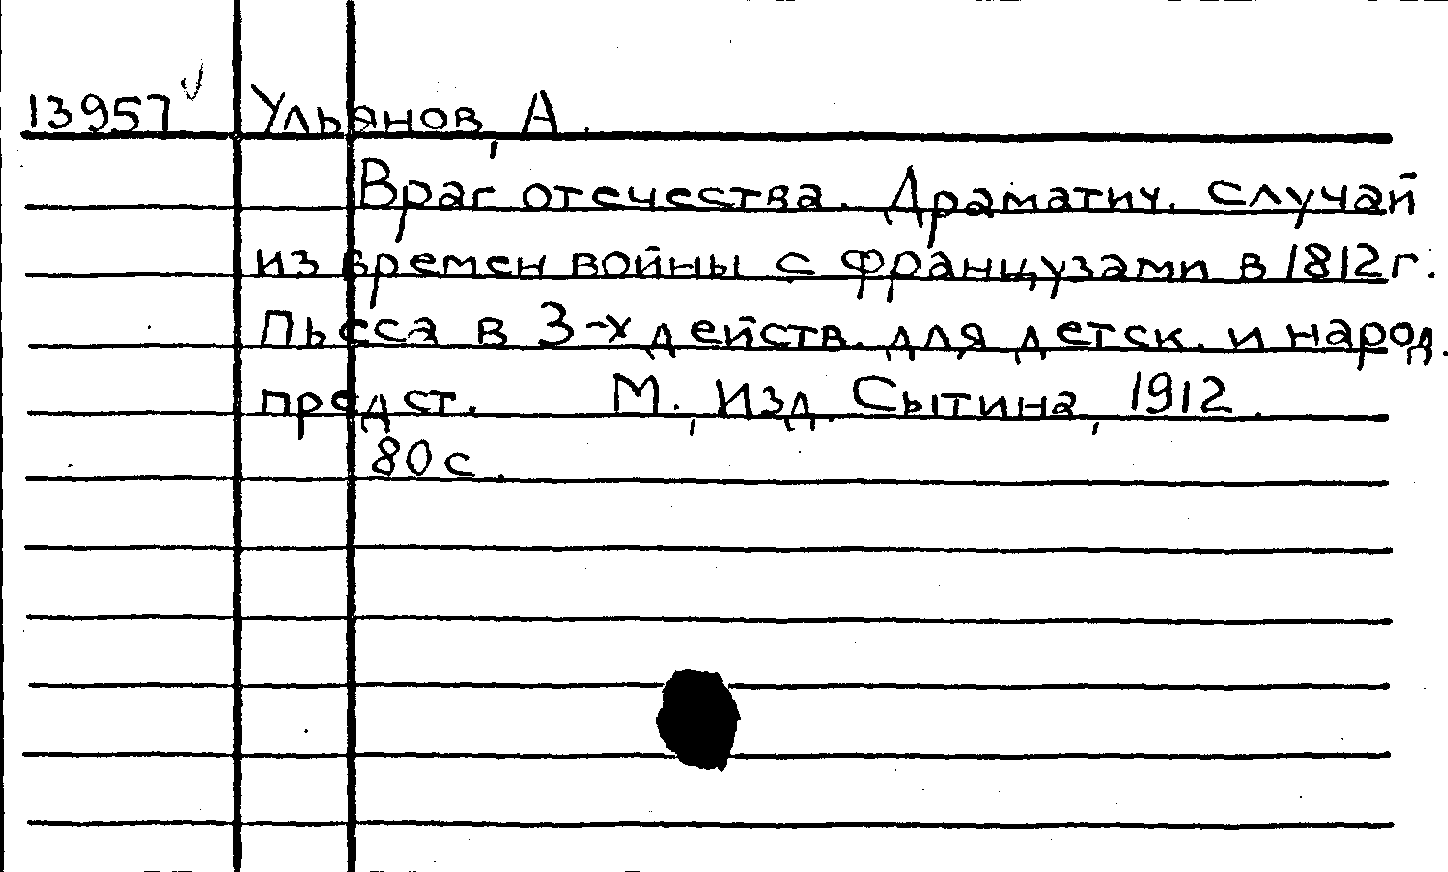 13957 ✓ Ульянов, А.
Враг отечества. Драматич. случай
из времен войны с французами в 1812 г.
Пьеса в 3-х действ. для детск. и народ.
предст. М., Изд. Сытина, 1912.
80 с.